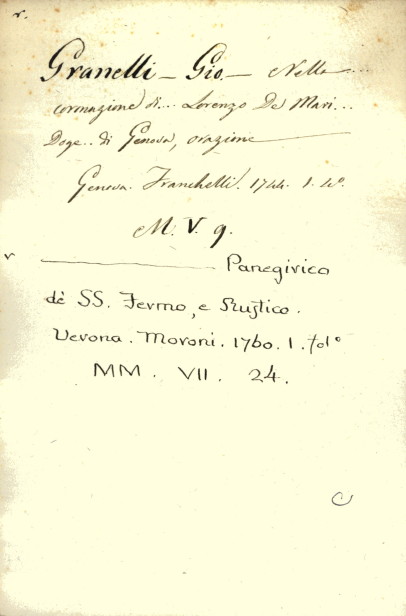 v.
Granelli - Gio - Nella ...
coronazione di .. Lorenzo De Mari ..
Doge .. di Genova, orazione
Genova. Franchelli. 1744. 1. 4º.
M. V. 9.
v
Panegirico
dè SS. Fermo, e Rustico.
Verona. Moroni. 1760. 1. fol º
MM. VII. 24.